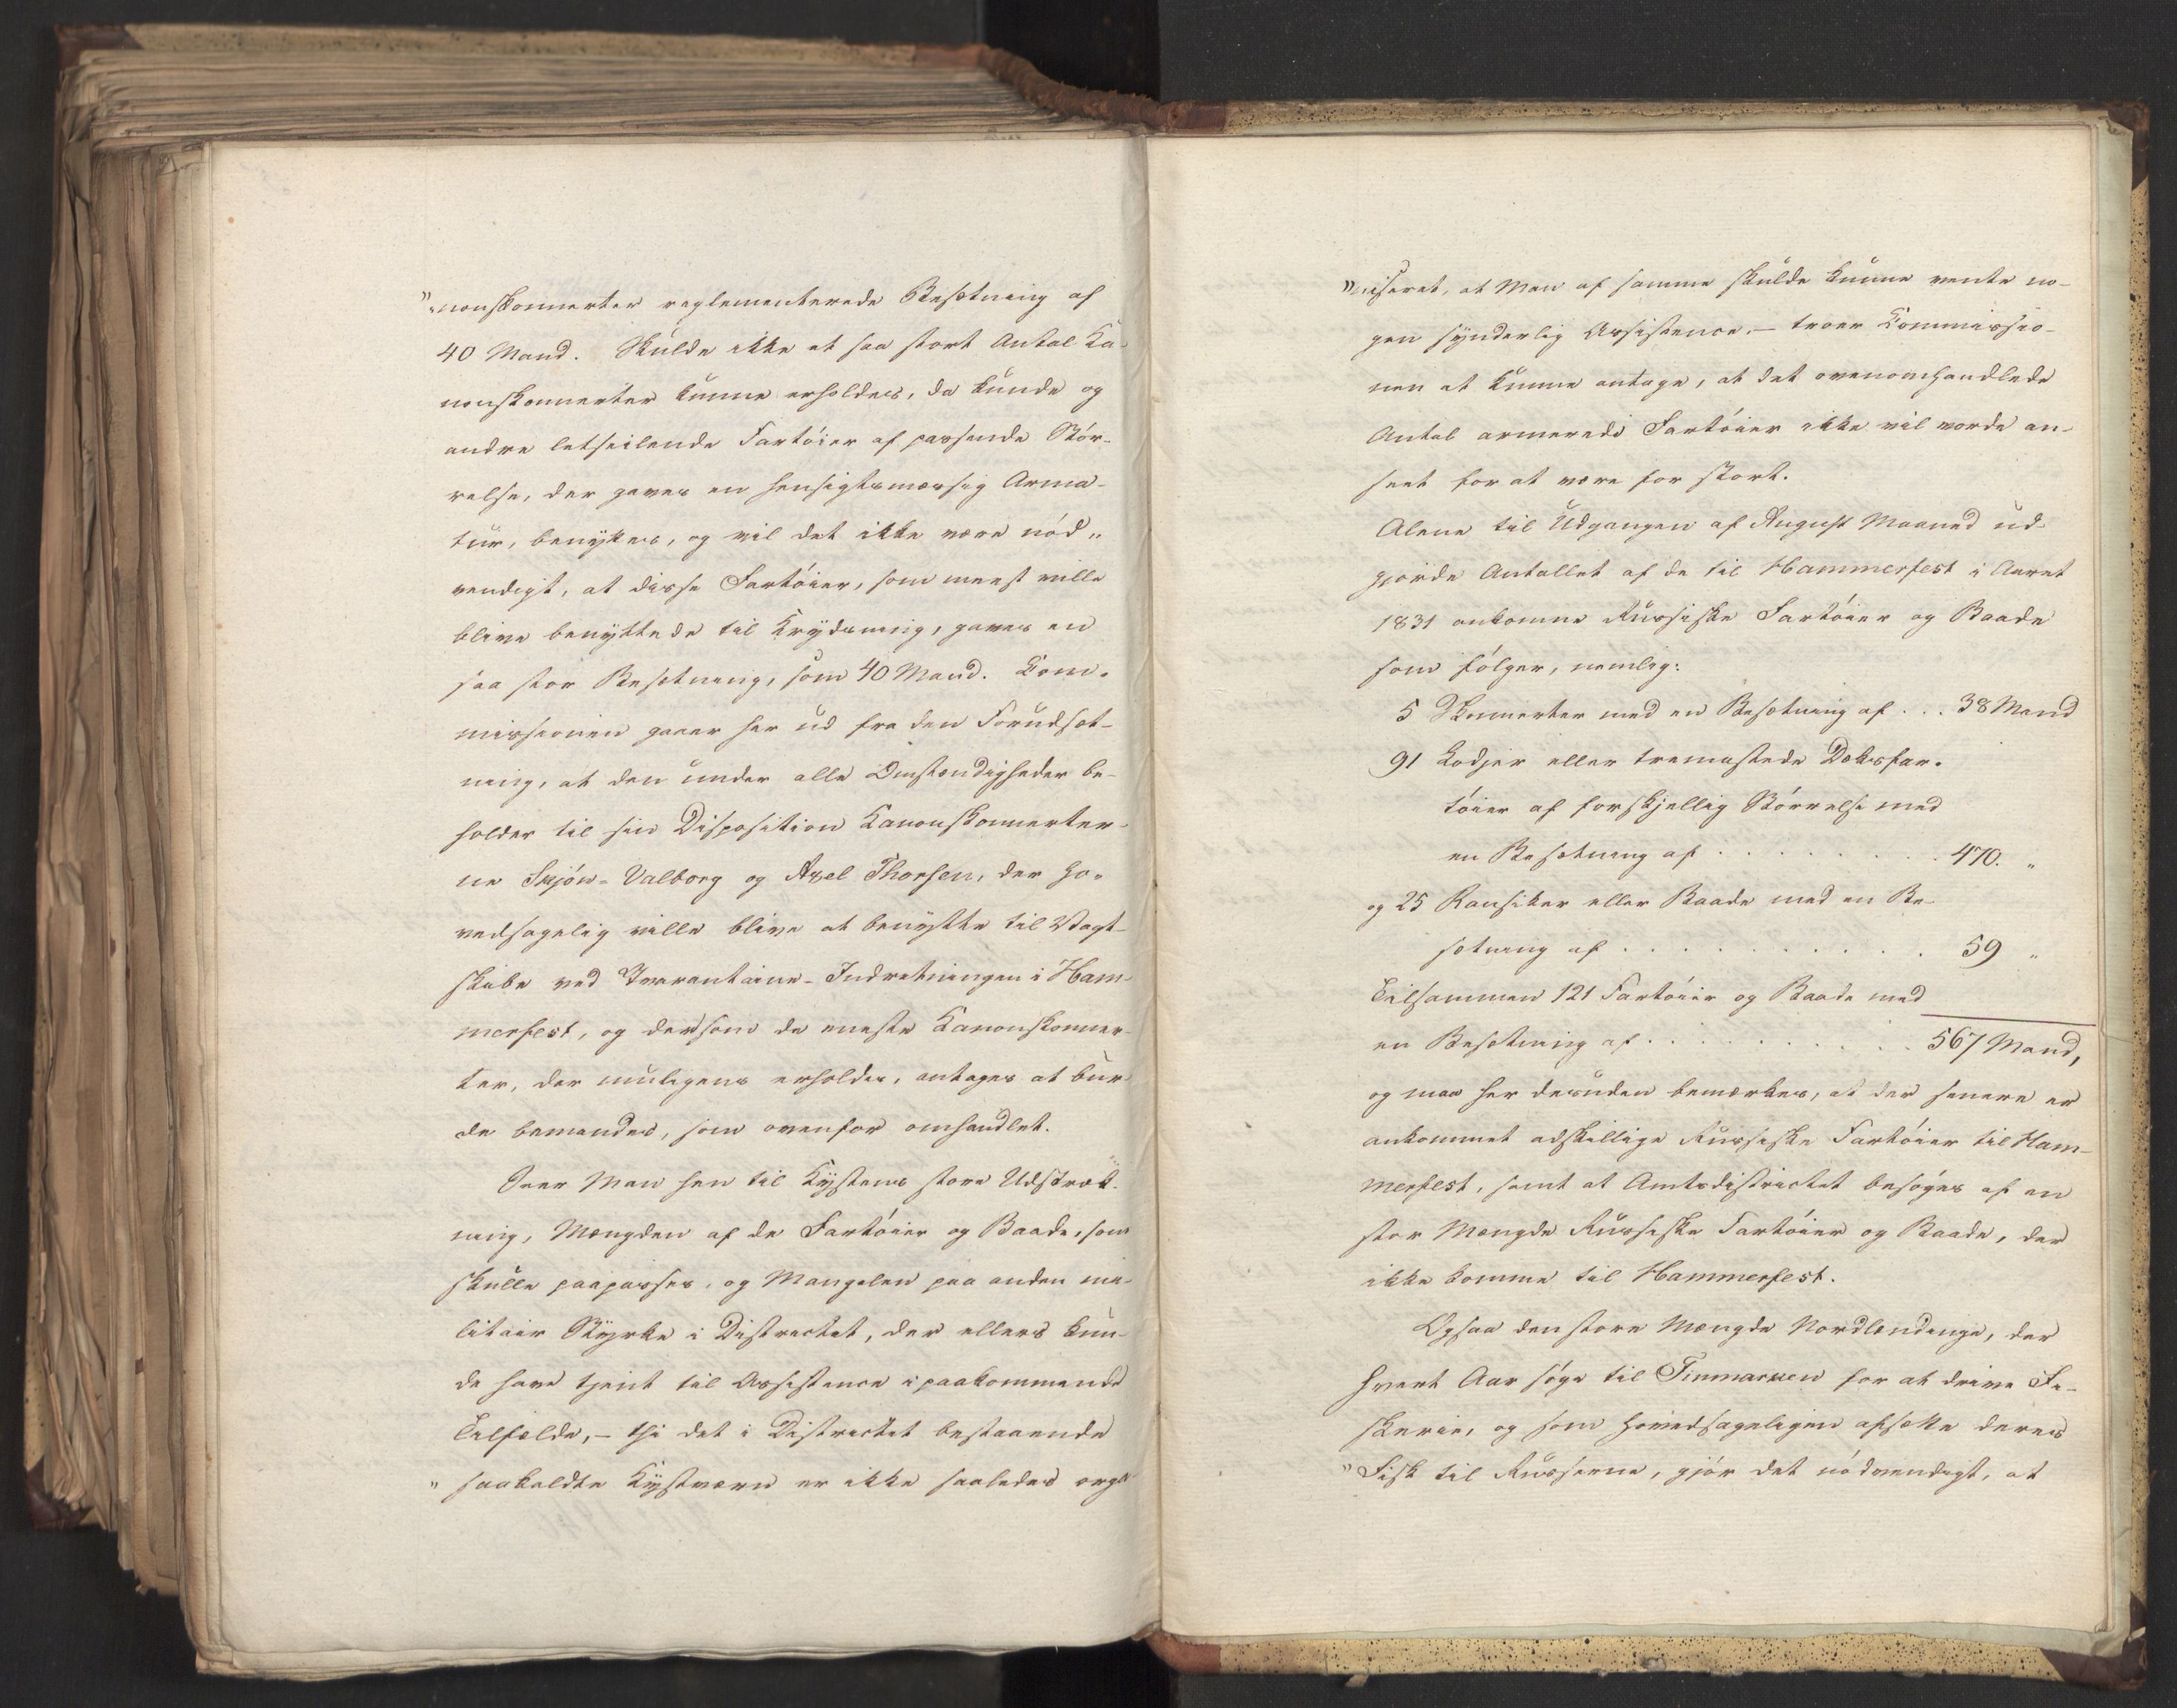 "nonskonnerter reglementerede Besætning af
40 Mand. Skulde ikke et saa stort Antal Ka-
nonskonnerter kunne erholdes, da kunde og
andre letseilende Fartöier af passende Stör-
relse, der gaves en hensigtsmæssig Arma-
tur, benyttes, og vil det ikke være nöd„
vendigt, at disse Fartöier, som meest ville
blive benyttede til Krydsning, gaves en
saa stor Besætning, som 40 Mand. Com-
missionen gaaer her ud fra den Forudsæt-
ning, at den under alle Omstændigheder be-
holder til sin Disposition Kanonskonnerter-
ne Skjön-Valborg og Axel Thorsen, der ho-
vedsagelig ville blive at benytte til Vagt-
skibe ved Qvarantaine-Indretningen i Ham-
merfest, og dersom de eneste Kanonskonner-
ter, der muligens erholdes, antages at bur-
de bemandes, som ovenfor omhandlet.
Seer Man hen til Kystens store Udstræk-
ning, Mængden af de Fartöier og Baade, som
skulle paapasses, og Mangelen paa anden mi-
litair Styrke i Districtet, der ellers kun-
de have tjent til Assistence i paakommende
Tilfælde, – thi det i Districtet bestaaende
" saakaldte Kystværn er ikke saaledes orga-
"niseret, at Man af samme skulde kunne vente no-
gen synderlig Assistence, – troer Commissio-
nen at kunne antage, at det ovenomhandlede
Antal armerede Fartöier ikke vil vorde an-
seet for at være for stort.
Alene til Udgangen af August Maaned ud-
gjorde Antallet af de til Hammerfest i Aaret
1831 ankomne Russiske Fartöier og Baade
som fölger, nemlig:
5 Skonnerter med en Besætning af . . . 38 Mand
91 Lodjer eller tremastede Dæksfar-
töier af forskjellig Störrelse med
en Besætning af . . . . . . . . . 470. "
og 25 Ranskiker eller Baade med en Be-
sætning af . . . . . . . . . . 59 "
Tilsammen 121 Fartöier og Baade med
en Besætning af . . . . . . . . . . 567 Mand,
og maa her desuden bemærkes, at der senere er
ankommet adskillige Russiske Fartöier til Ham-
merfest, samt at Amtsdistrictet besöges af en
stor Mængde Russiske Fartöier og Baade, der
ikke komme til Hammerfest.
Ogsaa den store Mængde Nordlændinge, der
hvert Aar söge til Finmarken for at drive Fi-
skerie, og som hovedsageligen afsætte deres
" Fisk til Russerne, gjör det nödvendigt, at